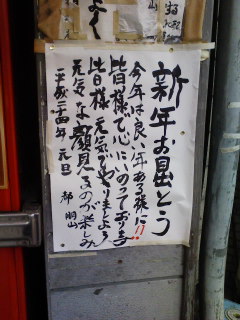 新年お目出とう
今年は良い年ある様に!!
皆様で心にいのっております
皆様元気でやりましょう
元気な顔見るのが楽しみ
平成二十四年 元旦